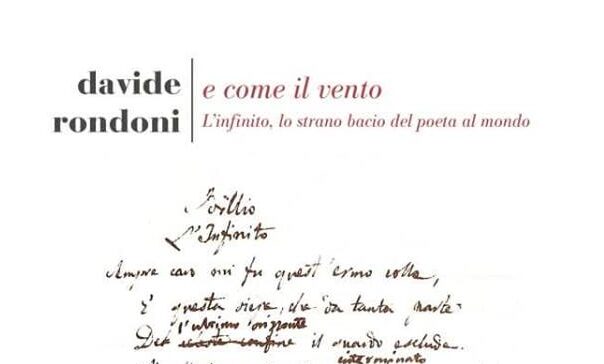 davide
rondoni
e come il vento
L'infinito, lo strano bacio del poeta al mondo
Idillio
L'Infinito
Sempre caro mi fu quest'ermo colle,
E questa siepe, che da tanta parte
l'ultimo orizzonte
Del celeste confine il guardo esclude.
interminato